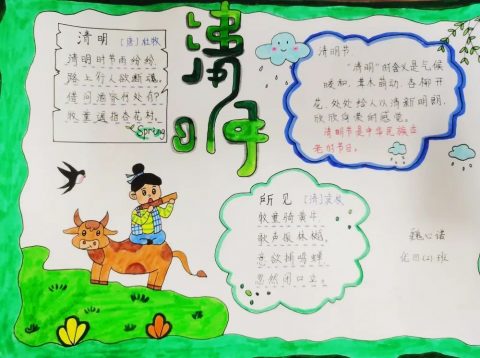 清明 [唐]杜牧
清明时节雨纷纷,
路上行人欲断魂。
借问酒家何处有?
牧童遥指杏花村。
Spring
清明
清明节
“清明”的含义是气候
暖和,草木萌动,杏柳开
花,处处给人以清新明朗,
欣欣向荣的感觉。
清明节是中华民族古
老的节日。
所见 [清]袁枚
牧童骑黄牛,
歌声振林樾。
意欲捕鸣蝉,
忽然闭口立。
魏心诺
(2)班